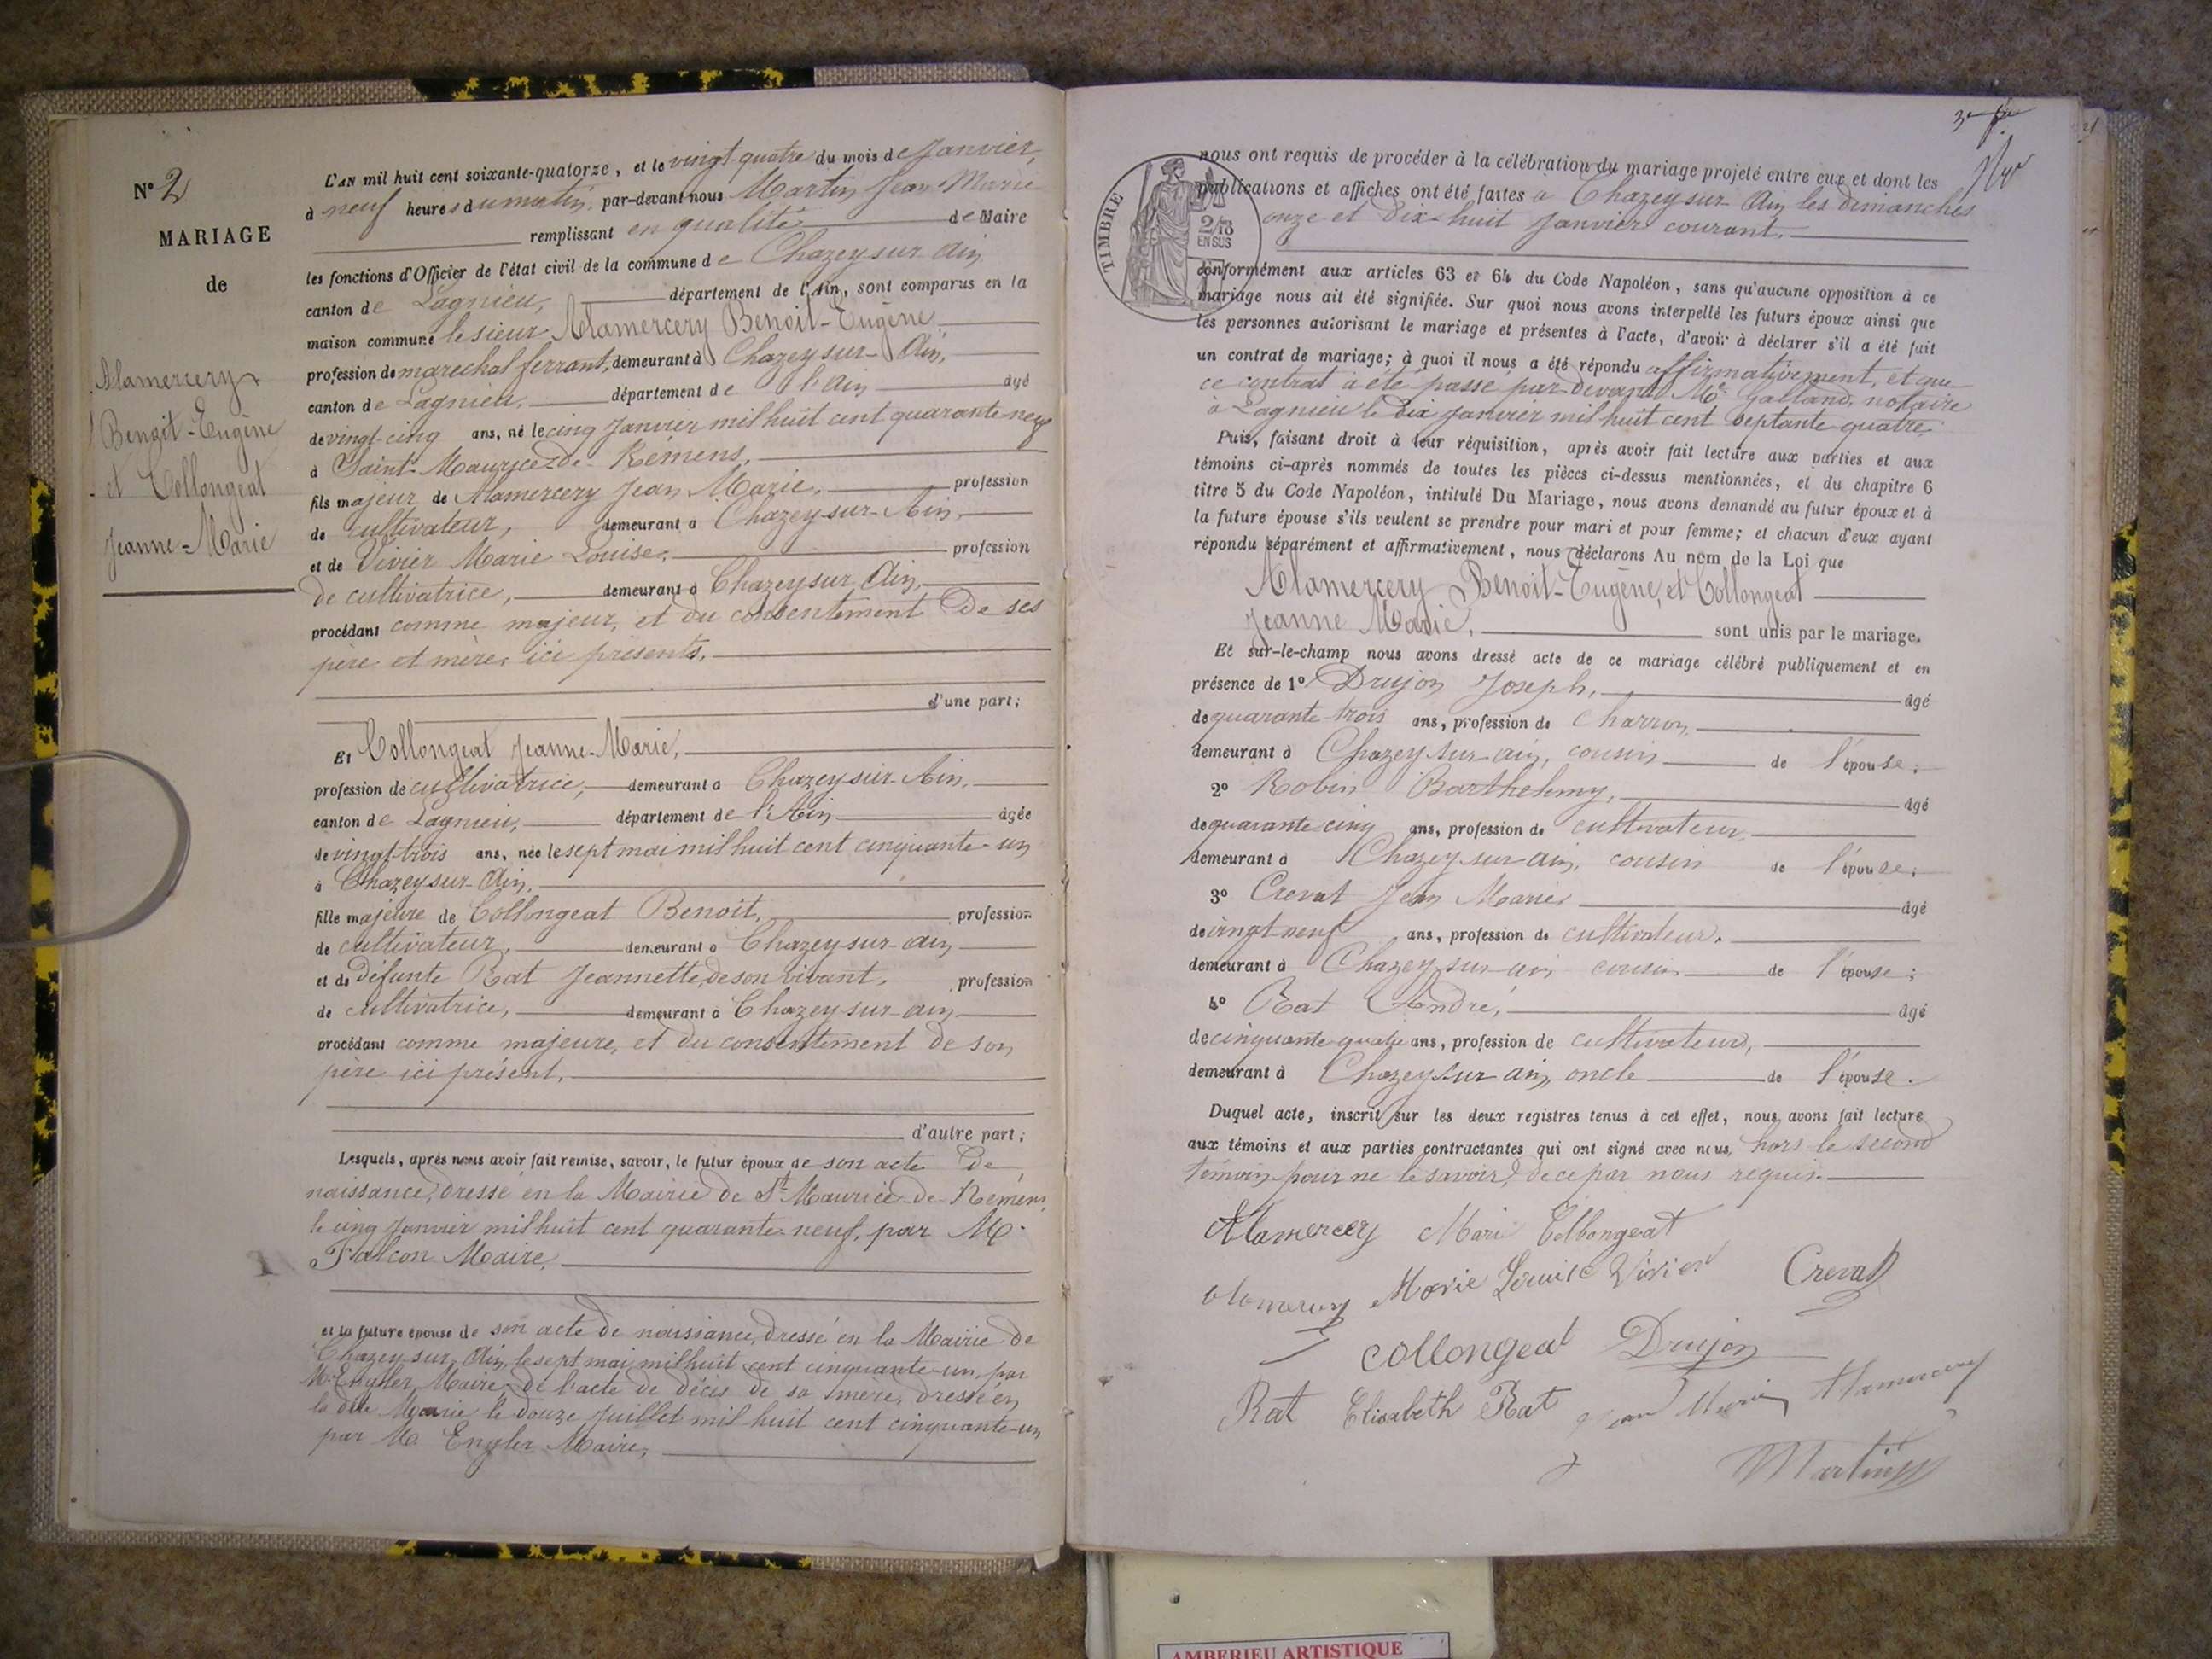 N° 2
MARIAGE
de
Alamercery
Benoit-Eugène
et Collongeat
Jeanne-Marie
L'AN mil huit cent soixante-quatorze, et le vingt-quatre du mois de Janvier,
à neuf heures du matin, par-devant nous Martin Jean Marie
remplissant en qualité de Maire
les fonctions d'Officier de l'état civil de la commune de Chazey sur Ain
canton de Lagnieu, département de l'Ain, sont comparus en la
maison commune le sieur Alamercery Benoit-Eugène
profession de marechal ferrant, demeurant à Chazey sur-Ain,
canton de Lagnieu, département de l'Ain âgé
de vingt-cinq ans, né le cinq Janvier mil huit cent quarante-neuf
à Saint-Maurice-de-Rémens,
fils majeur de Alamercery Jean Marie, profession
de cultivateur, demeurant à Chazey-sur-Ain,
et de Vivier Marie Louise, profession
de cultivatrice, demeurant à Chazey sur Ain,
procédant comme majeur, et du consentement de ses
père et mère, ici présents,
d'une part;
Et Collongeat Jeanne-Marie,
profession de cultivatrice, demeurant à Chazey-sur-Ain,
canton de Lagnieu, département de l'Ain âgée
de vingt-trois ans, née le sept mai mil huit cent cinquante-un
à Chazey sur-Ain,
fille majeure de Collongeat Benoit, profession
de cultivateur, demeurant à Chazey-sur-ain
et de défunte Rat Jeannette, de son vivant, profession
de cultivatrice, demeurant à Chazey-sur-ain
procédant comme majeure, et du consentement de son
père ici présent,
d'autre part;
Lesquels, après nous avoir fait remise, savoir, le futur époux de son acte de
naissance, dressé en la Mairie de St. Maurice-de-Rémens,
le cinq Janvier mil huit cent quarante-neuf, par M.
Falcon Maire,
et la future épouse de son acte de naissance, dressé en la Mairie de
Chazey-sur-Ain, le sept mai mil huit cent cinquante-un, par
M. Engler Maire, de l'acte de décès de sa mère, dressé en
la dite Mairie le douze Juillet mil huit cent cinquante-un
par M. Engler Maire,
TIMBRE
2/10
EN SUS
nous ont requis de procéder à la célébration du mariage projeté entre eux et dont les
publications et affiches ont été faites à Chazey-sur-Ain les dimanches
onze et dix-huit Janvier courant,
conformément aux articles 63 et 64 du Code Napoléon, sans qu'aucune opposition à ce
mariage nous ait été signifiée. Sur quoi nous avons interpellé les futurs époux ainsi que
les personnes autorisant le mariage et présentes à l'acte, d'avoir à déclarer s'il a été fait
un contrat de mariage; à quoi il nous a été répondu affirmativement, et que
ce contrat a été passé par-devant Me. Galland, notaire
à Lagnieu le dix janvier mil huit cent septante quatre,
Puis, faisant droit à leur réquisition, après avoir fait lecture aux parties et aux
témoins ci-après nommés de toutes les pièces ci-dessus mentionnées, et du chapitre 6
titre 5 du Code Napoléon, intitulé Du Mariage, nous avons demandé au futur époux et à
la future épouse s'ils veulent se prendre pour mari et pour femme; et chacun d'eux ayant
répondu séparément et affirmativement, nous déclarons Au nom de la Loi que
Alamercery Benoit-Eugène, et Collongeat
Jeanne Marie, sont unis par le mariage.
Et sur-le-champ nous avons dressé acte de ce mariage célébré publiquement et en
présence de 1° Drujon Joseph, âgé
de quarante-trois ans, profession de charron,
demeurant à Chazey sur-ain, cousin de l'épouse;
2° Robin Barthelemy, âgé
de quarante cinq ans, profession de cultivateur
demeurant à Chazey-sur-ain, cousin de l'épouse;
3° Crevat Jean Marie âgé
de vingt neuf ans, profession de cultivateur,
demeurant à Chazey sur-ain cousin de l'épouse;
4° Rat André, âgé
de cinquante quatre ans, profession de cultivateur,
demeurant à Chazey sur ain, oncle de l'épouse.
Duquel acte, inscrit sur les deux registres tenus à cet effet, nous avons fait lecture
aux témoins et aux parties contractantes qui ont signé avec nous, hors le second
témoin, pour ne le savoir, de ce par nous requis.
Alamercery Marie Collongeat
Alamercery Marie Louise Vivier Crevat
Collongeat Drujon
Rat Elisabeth Rat Jean Marie Alamercery
Martin
AMBERIEU ARTISTIQUE